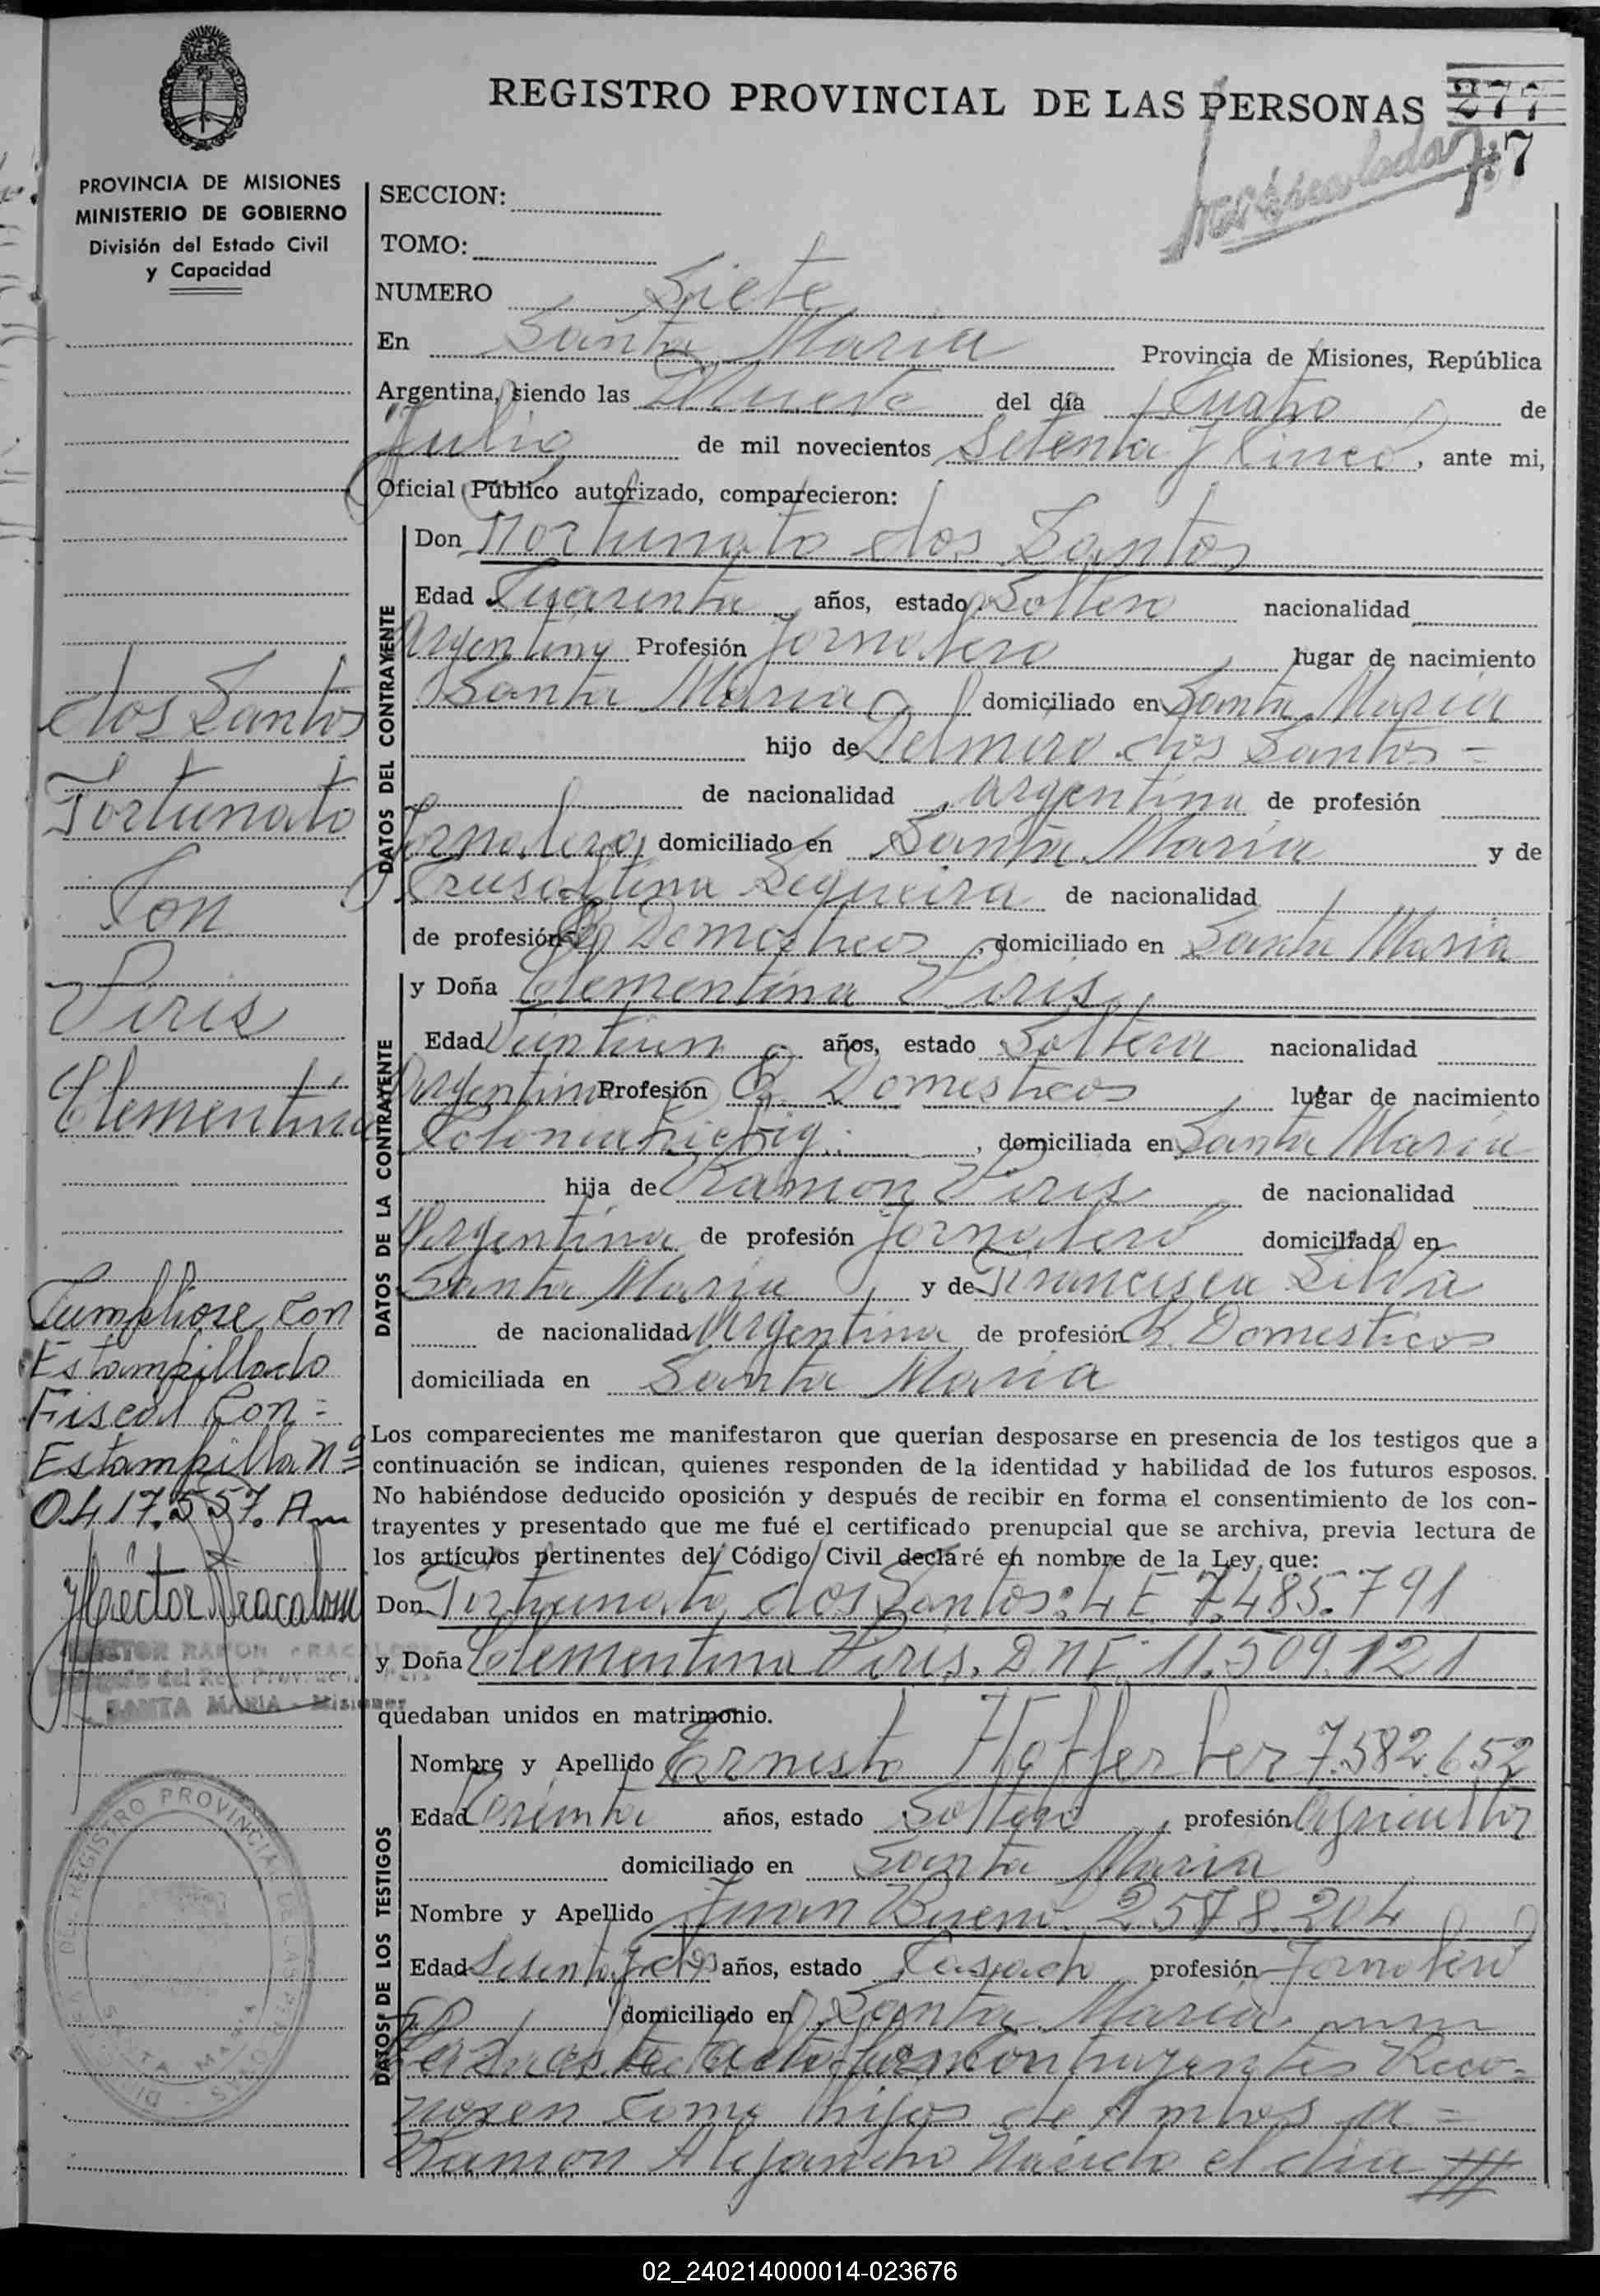 REGISTRO PROVINCIAL DE LAS PERSONAS 277
7
PROVINCIA DE MISIONES
MINISTERIO DE GOBIERNO
División del Estado Civil
y Capacidad
SECCION:
TOMO:
NUMERO Siete
En Santa María Provincia de Misiones, República
Argentina, siendo las Nueve del día Cuatro de
Julio de mil novecientos Setenta y Cinco, ante mi,
Oficial Público autorizado, comparecieron:
DATOS DEL CONTRAYENTE
Don Fortunato dos Santos
Edad Cuarenta años, estado Soltero nacionalidad
Argentina Profesión Jornalero lugar de nacimiento
Santa María domiciliado en Santa María
hijo de Delmiro dos Santos =
de nacionalidad Argentina de profesión
Jornalero, domiciliado en Santa María y de
Sequeira de nacionalidad
de profesión Q. Domésticos, domiciliado en Santa María
DATOS DE LA CONTRAYENTE
y Doña Clementina Piris
Edad Veintiun años, estado Soltera nacionalidad
Argentina Profesión Q. Domésticos lugar de nacimiento
Colonia, domiciliada en Santa María
hija de Ramón Piris de nacionalidad
Argentina de profesión Jornalero domiciliada en
Santa María y de Francisca Silva
de nacionalidad Argentina de profesión Q. Domésticos
domiciliada en Santa María
Los comparecientes me manifestaron que querían desposarse en presencia de los testigos que a
continuación se indican, quienes responden de la identidad y habilidad de los futuros esposos.
No habiéndose deducido oposición y después de recibir en forma el consentimiento de los con-
trayentes y presentado que me fué el certificado prenupcial que se archiva, previa lectura de
los artículos pertinentes del Código Civil declaré en nombre de la Ley, que:
Don Fortunato dos Santos: L E 7.485.791
y Doña Clementina Piris. D.N.I. 11.509.121
quedaban unidos en matrimonio.
DATOS DE LOS TESTIGOS
Nombre y Apellido Ernesto 7.582.652
Edad Treinta años, estado Soltero, profesión Agricultor
domiciliado en Santa María
Nombre y Apellido Juan Bueno. 2578.204
Edad años, estado Casado profesión Jornalero
domiciliado en Santa María
contrayentes Reco=
nosen como hijos de Ambos a =
Ramón Alejandro Nacido el día ///
dos Santos
Fortunato
Con
Piris
Clementina
Cumpliose con
Estampillado
Fiscal Con =
Estampilla nº
0417.557. A
Héctor Bracalone
HECTOR RAMON BRACALONE
SANTA MARIA - Misiones
REGISTRO PROVINCIAL DE LAS PERSONAS
SANTA MARIA
02_240214000014-023676